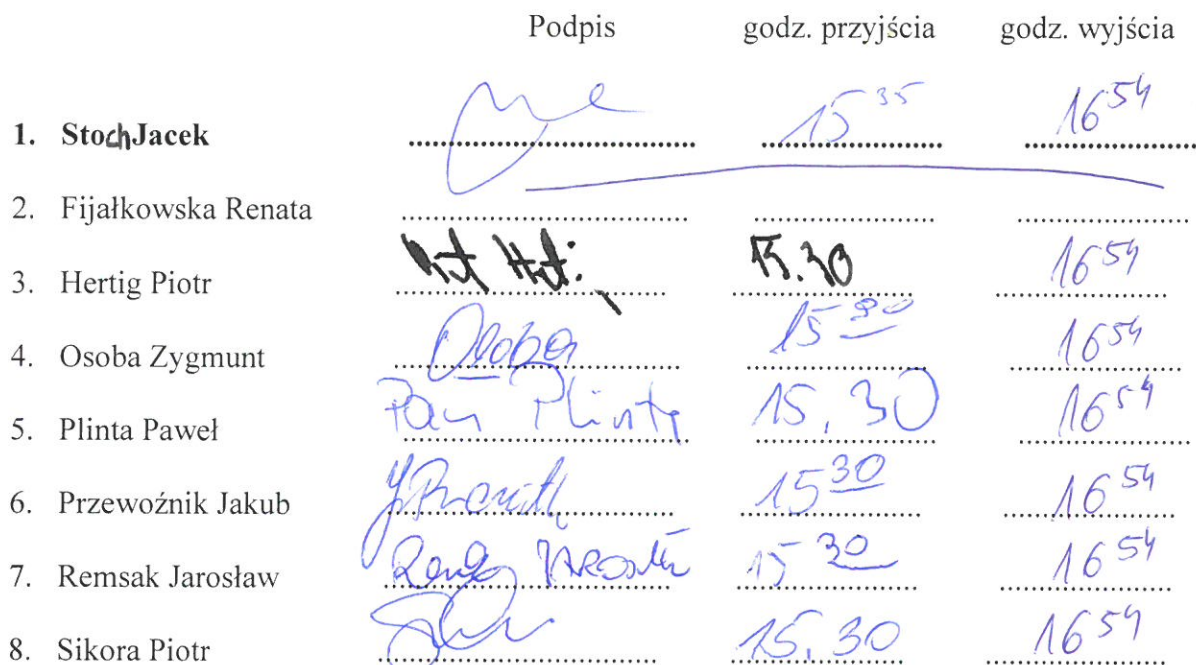 Podpis godz. przyjścia godz. wyjścia
1. Stoch Jacek 15 35 16 54
2. Fijałkowska Renata
3. Hertig Piotr 15.30 16 54
4. Osoba Zygmunt Osoba 15 30 16 54
5. Plinta Paweł Plinta 15.30 16 54
6. Przewoźnik Jakub 15 30 16 54
7. Remsak Jarosław 15 30 16 54
8. Sikora Piotr 15.30 16 54